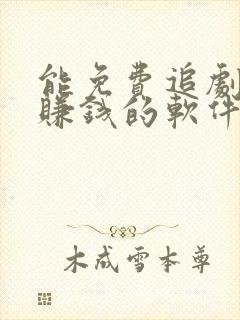 能免費追劇
賺錢的軟件
木成雪本尊